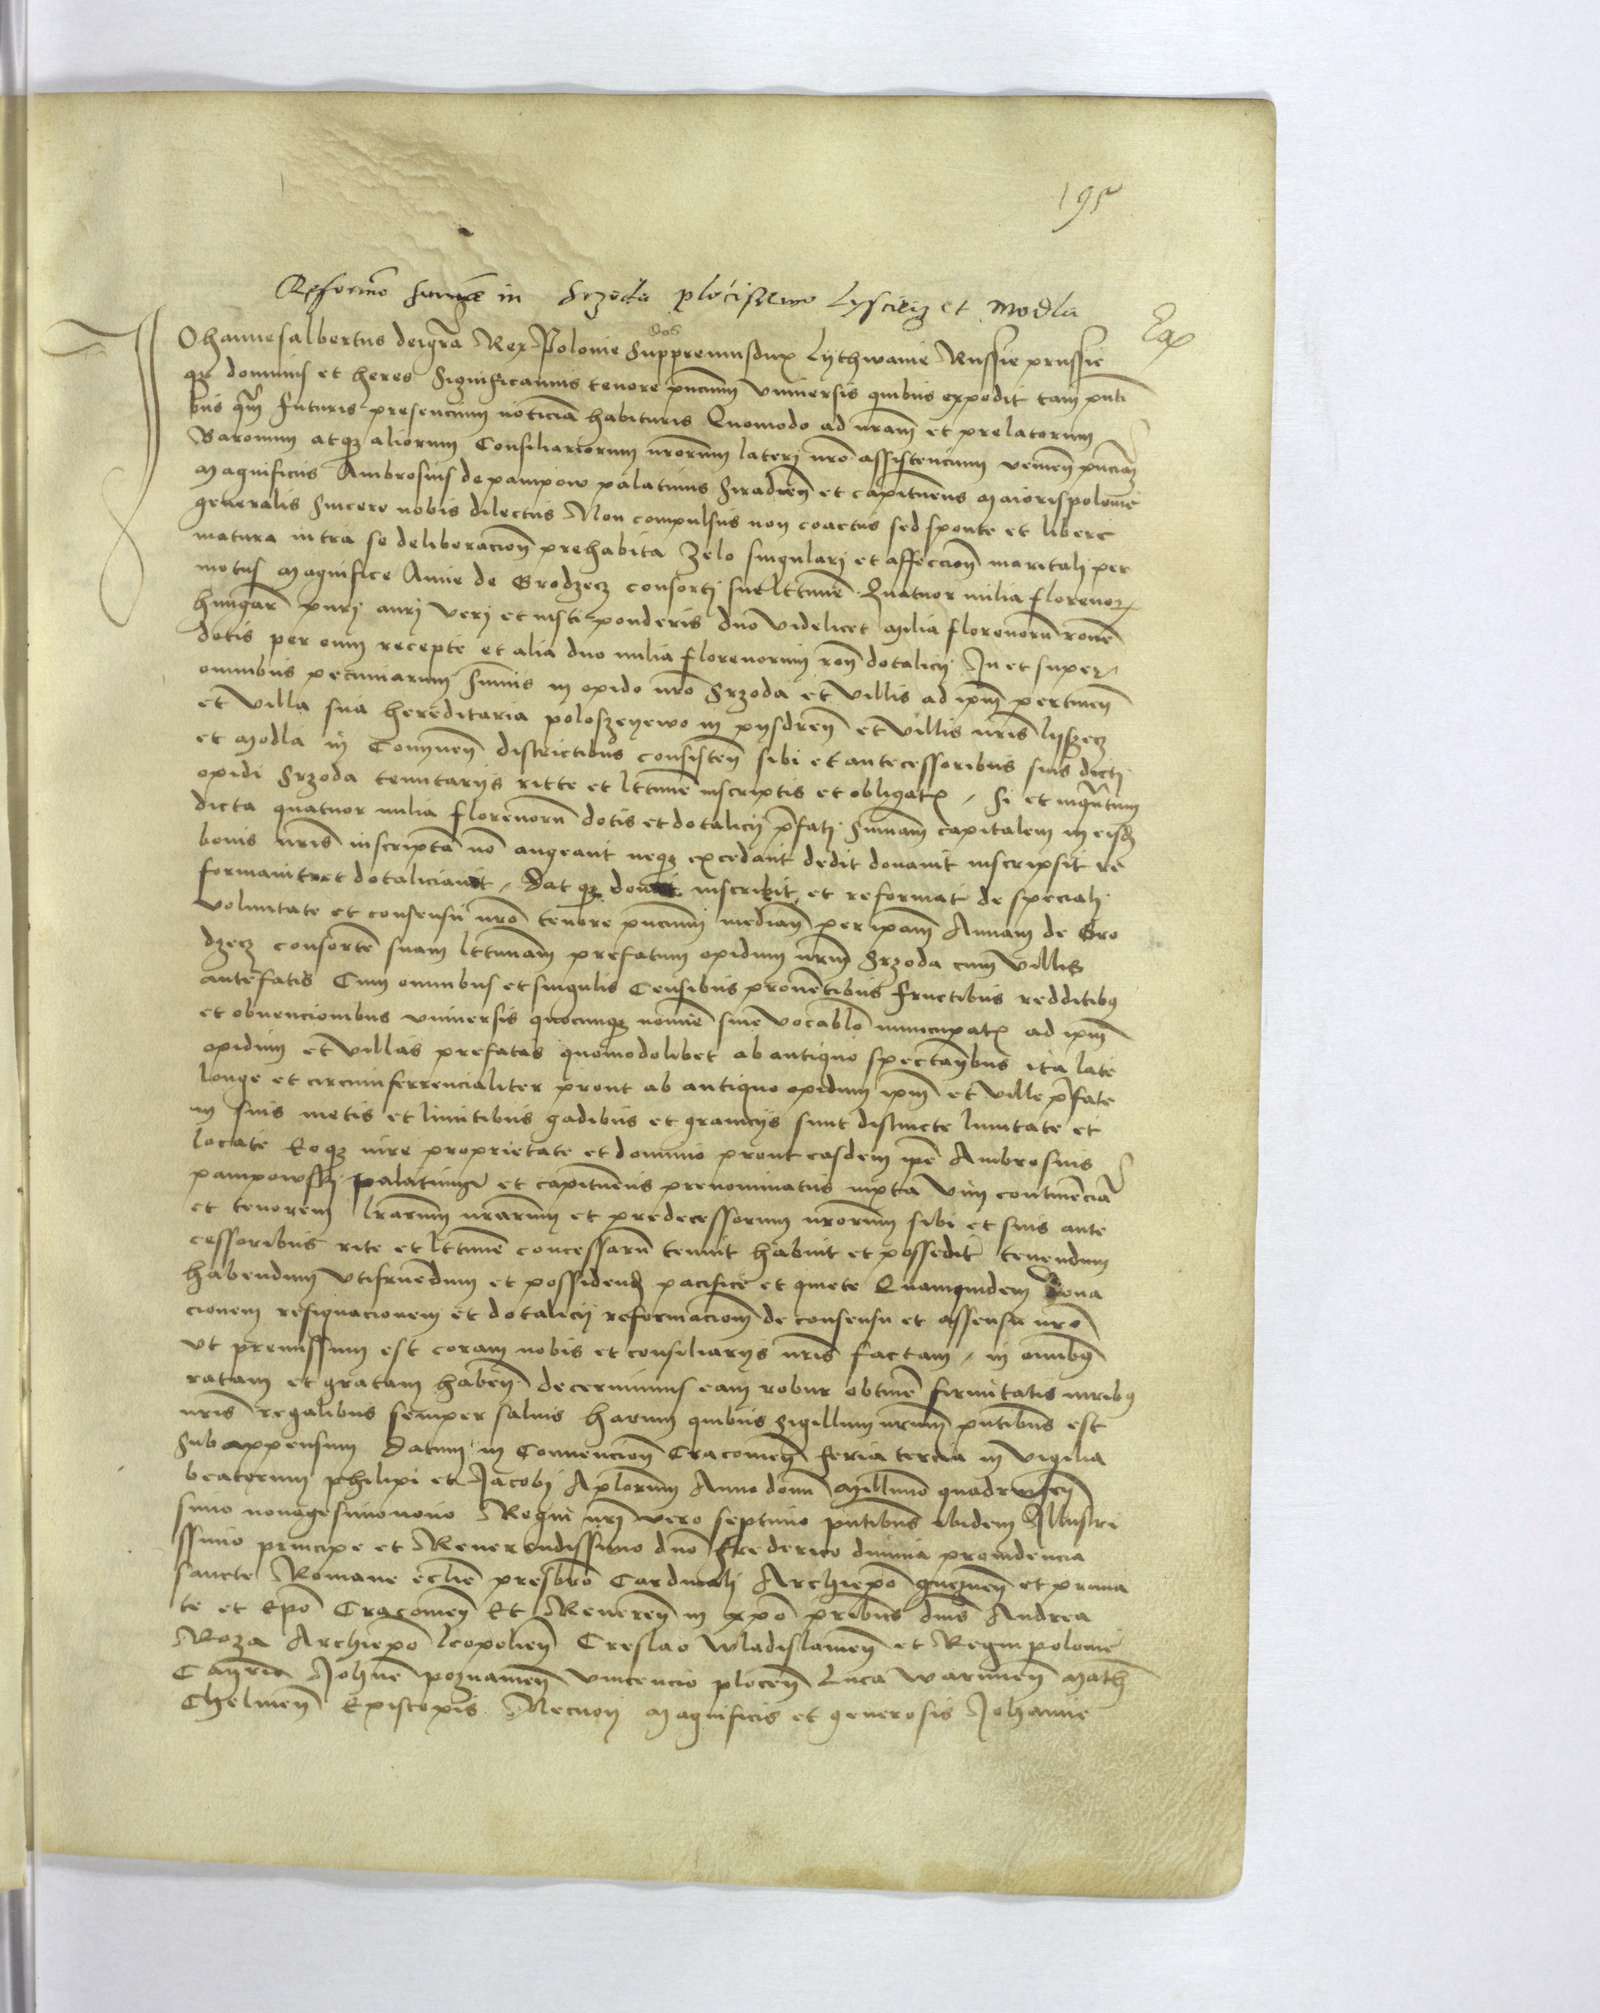 195
Reformo summe in Srzoda plocissewo Lyscziecz et Modla
dos
Johannesalbertus deigrā Rex Polonie Suppremusdux Lythwanie Russie prussie
qz dominus et heres Significamus tenore pncium vniuersis quibus expedit tam pnti
bus qm̄ futuris presencium noticia habituris Quomodo ad nram̄ et prelatorum
Baronum atqz aliorum Consiliariorum nrorum laterj nro assistencium venien̄ pnciam
Magnificus Ambrosius de pampow palatinus Siradien̄ et capitaneus Maiorispolonie
generalis Sincere nobis dilectus Non compulsus non coactus sed sponte et libere
matura intra se deliberacion̄ prehabita Zelo singularj et affeccion̄ maritalj per
motus Magnifice Anne de Grodzecz consortj sue lttime Quatuor milia florenorz
hungar̄ purj aurj verj et iusti ponderis duo videlicet Milia florenorū roñe
dotis per eum recepte et alia duo milia florenorum ron̄ dotalicij In et super
omnibus pecuniarum summis in opido nro Srzoda et villis ad ipm̄ pertinen̄
et villa sua hereditaria poloszeyewo in pysdren̄ et villis nris lysszecz
et Modla in Conynen̄ districtibus consisten̄ sibi et antecessoribus suis dictj
opidi Srzoda tenutarijs ritte et lttime inscriptis et obligatz, Si et inqntum
dicta quatuor milia florenorū dotis et dotalicij pfatj Summam capitalem in eisdz
bonis nris inscripta no augeant neqz excedant dedit donauit inscripsit re
formauit et dotaliciauit, Dat qz donat inscribit et reformat de specialj
voluntate et consensu nro tenore pncium median̄ per ipam̄ Annam de Gro
dzecz consortē suam lttimam prefatum opidum nrm̄ Srzoda cum villis
antefatis Cum omnibus et singulis Censibus prouētibus fructibus redditibus
et obuencionibus vniuersis quocunqz nomie siue vocablo nuncupatz ad ipm̄
opidum et villas prefatas quomodolibet ab antiquo spectan̄bus ita late
longe et circumferrencialiter prout ab antiquo opidum ipm̄ et ville pfate
in suis metis et limitibus gadibus et granicijs sunt distincte limitate et
locate Eoqz iure proprietate et dominio prout easdem ipē Ambrosius
pampowskj palatinus et capitaneus prenominatus iuxta vim continēcia
et tenorem lrarum nrarum et predecessorum nrorum sibi et suis ante
cessoribus rite et lttime concessarū tenuit habuit et possedit tenendum
habendum vtifruendum et possidendz pacifice et quiete Quamquidem dona
cionem resignacionem et dotalicij reformacionem̄ de consensu et assensu nro
vt premissum est coram nobis et consiliarijs nris factam, in omnibus
ratam et gratam haben̄ decernimus eam robur obtine firmitatis iuribus
nris regalibus semper saluis harum quibus sigillum nrum pntibus est
Subappensum Datum in Conuencion̄ Cracouien̄ feria tercia in vigilia
beatorum philipi et Jacobj Aplorum Anno domi Millimo quadringen
simo nonagesimonono Regni nrj vero septimo pntibus ibidem Illustri
ssimo principe et Reuerendissimo dno Frederico diuina prouidencia
sancte Romane ecclie presbrō Cardinalj Archiepo gneznen̄ et prima
te et Epo Cracouien̄ Et Reueren̄ in xpo pribus dnis Andrea
Roza Archiepo leopolien̄ Creslao wladislauien̄ et Regni polonie
Cancr̄ Johne poznanien̄ vincencio plocen̄ Luca warmien̄ Math
Chelmen̄ Episcopis Necnon Magnificis et generosis Johanne